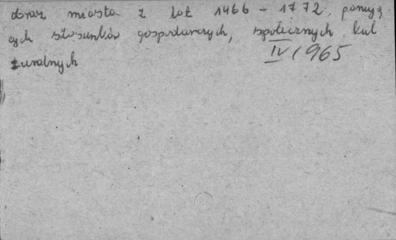 obraz miasta z lat 1466 - 1772, panują
cych stosunków gospodarczych, społecznych, kul
turalnych
IV/1965